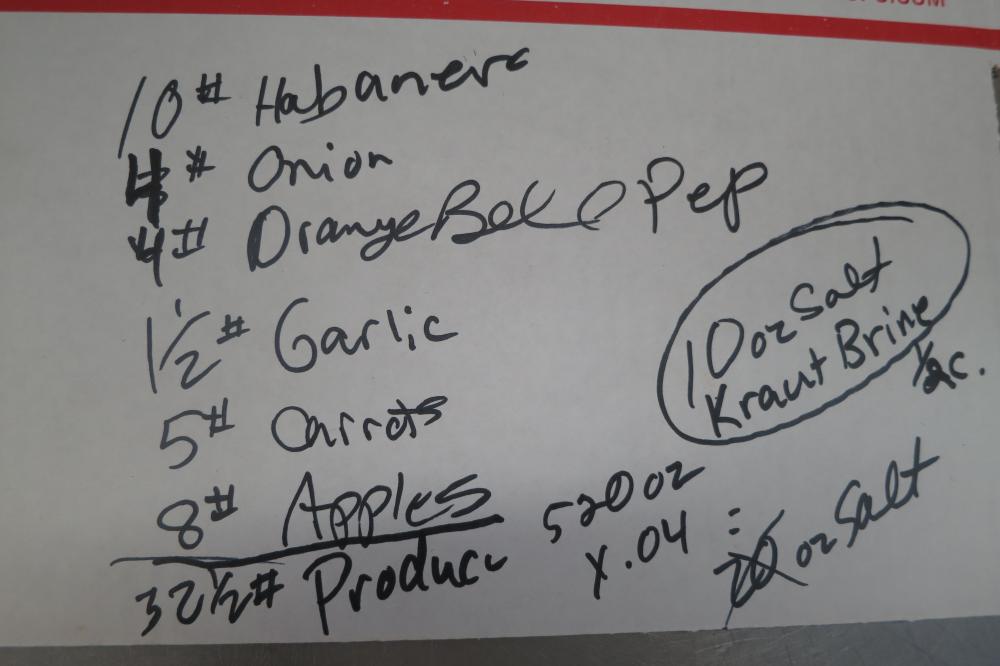 10# Habanero
4# Onion
4# Orange Bell Pep
1½# Garlic
5# Carrots
8# Apples
32½# Produce
520 oz
x.04
:
oz Salt
10 oz Salt
Kraut Brine
½ c.